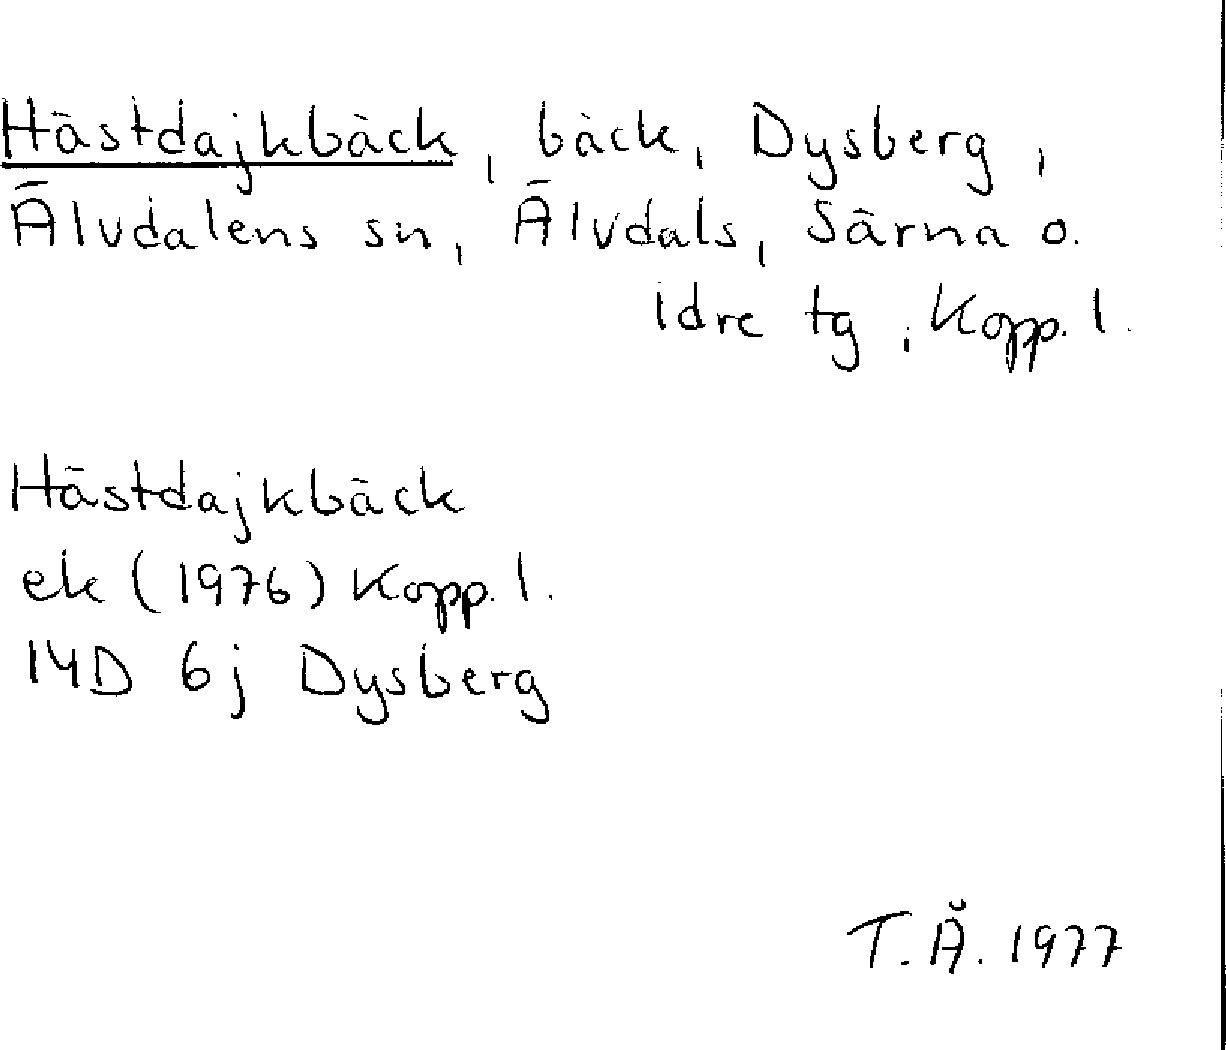 Hästdajkbäck, bäck, Dysberg,
Älvdalens sn, Älvdals, Särna o.
Idre tg, Kopp. l.
Hästdajkbäck
ek (1976) Kopp. l.
14D 6j Dysberg
T.Å. 1977